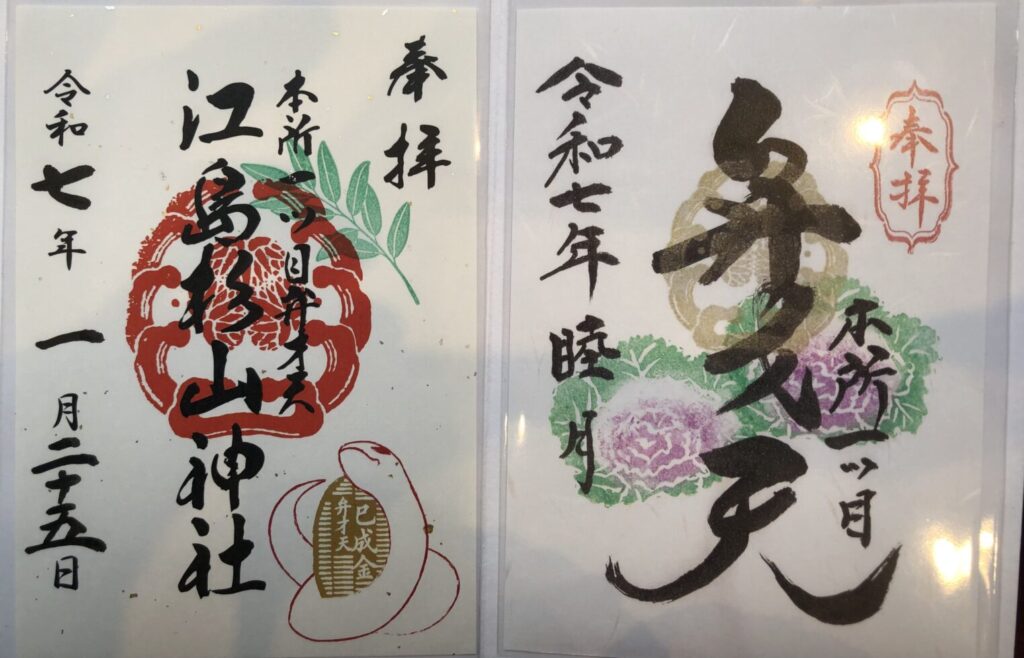 奉拝
本所一ツ目弁才天
江島杉山神社
令和七年一月二十五日
三巳成金
弁才天
奉拝
本所一ツ目
弁才天
令和七年睦月